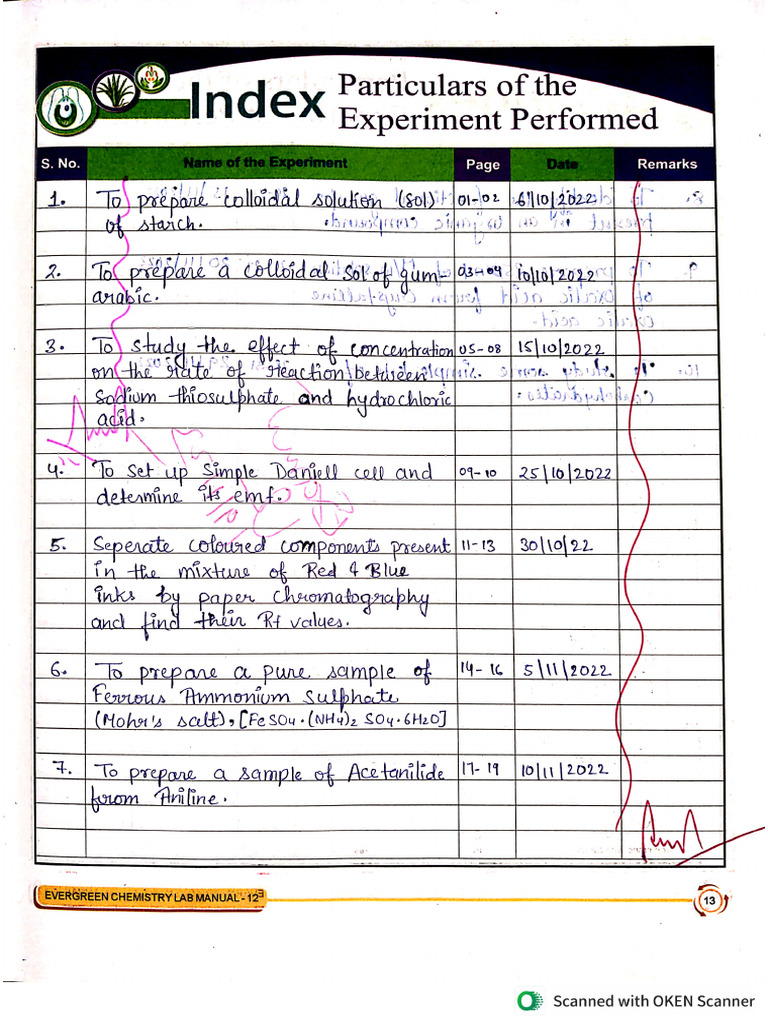 Index
Particulars of the
Experiment Performed
S. No. Name of the Experiment Page Date Remarks
1. To prepare colloidal solution (sol) 01-02 6/10/2022
of starch.
2. To prepare a colloidal sol of gum- 03-04 10/10/2022
arabic.
3. To study the effect of concentration 05-08 15/10/2022
on the rate of reaction between
Sodium thiosulphate and hydrochloric
acid.
4. To set up Simple Daniell cell and 09-10 25/10/2022
determine its emf.
5. Seperate coloured components present 11-13 30/10/22
in the mixture of Red & Blue
inks by paper chromatography
and find their Rf values.
6. To prepare a pure sample of 14-16 5/11/2022
Ferrous Ammonium Sulphate
(Mohr's salt), [FeSO4.(NH4)2 SO4.6H2O]
7. To prepare a sample of Acetanilide 17-19 10/11/2022
from Aniline.
EVERGREEN CHEMISTRY LAB MANUAL - 12
13
Scanned with OKEN Scanner